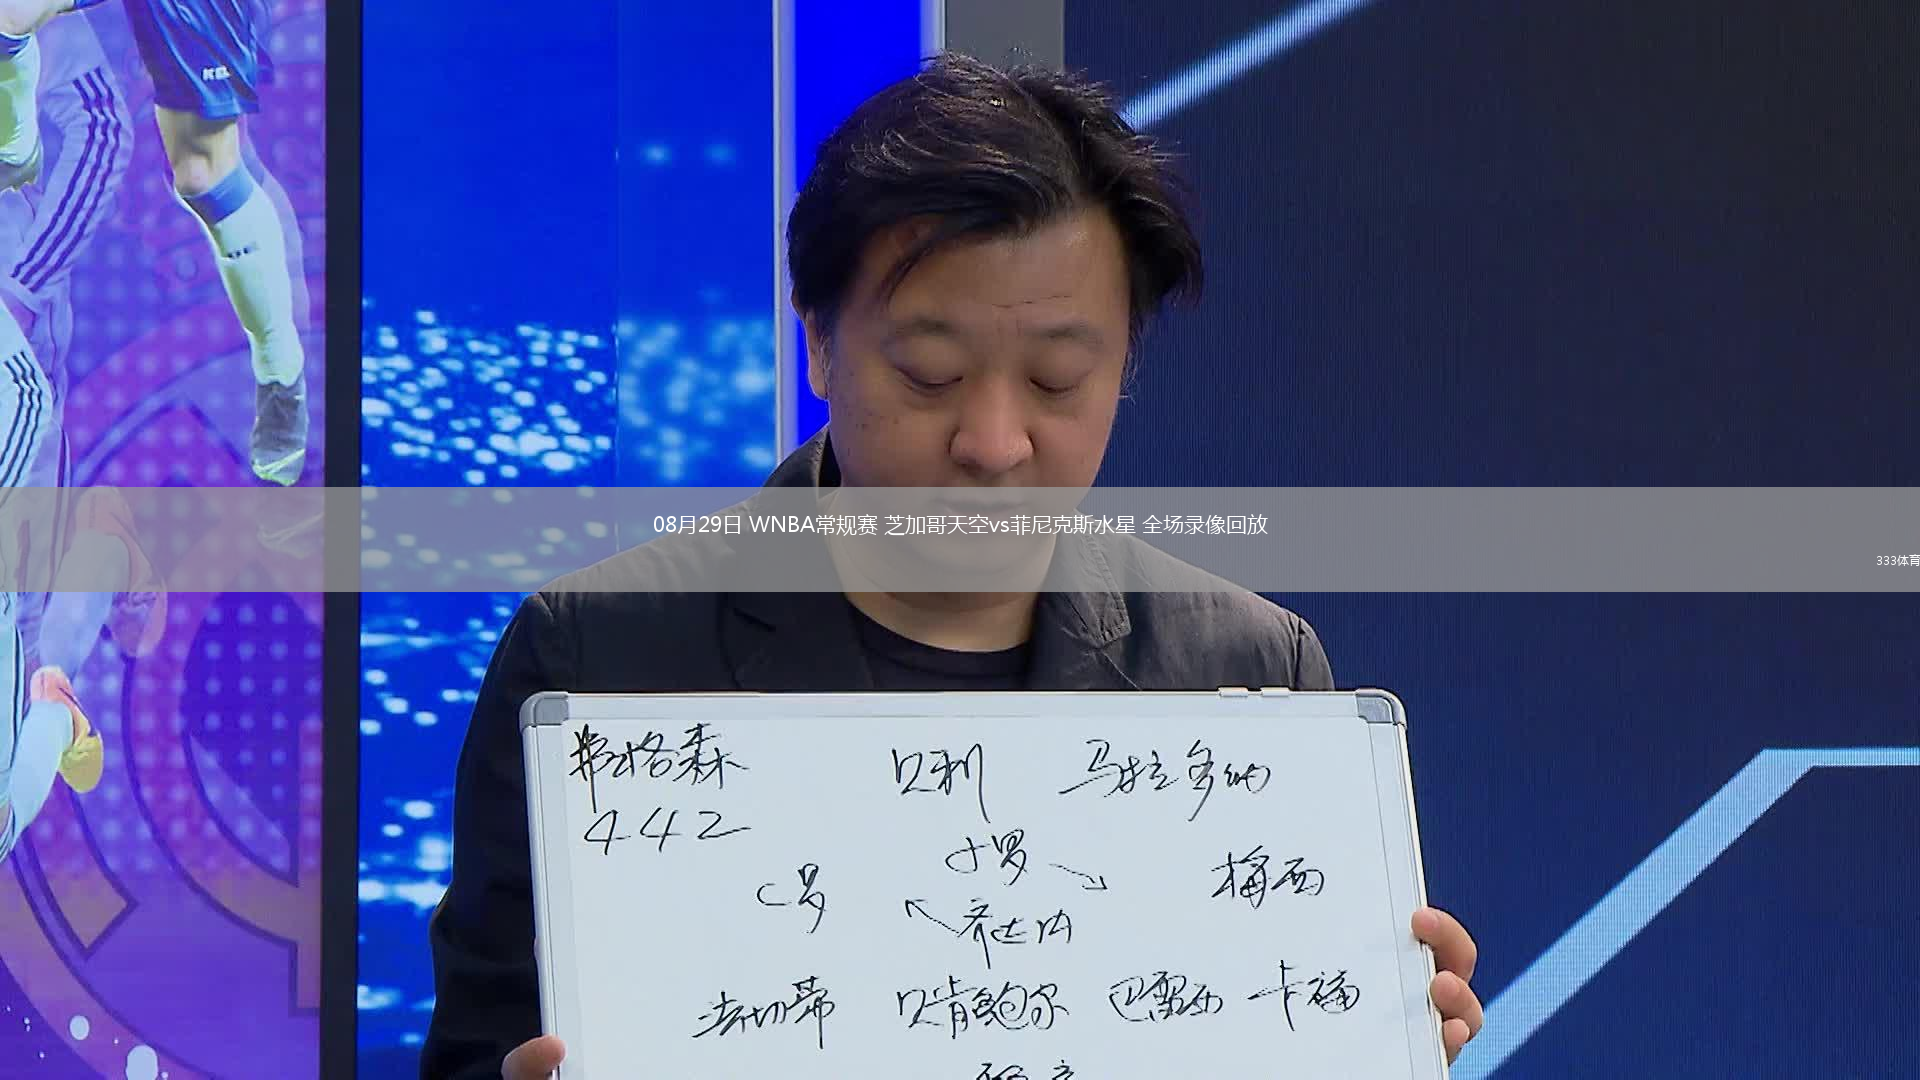 08月29日 WNBA常规赛 芝加哥天空vs菲尼克斯水星 全场录像回放
333体育
弗格森 贝利 马拉多纳
442
小罗
C罗 梅西
齐达内
法切蒂 贝肯鲍尔 巴雷西 卡福